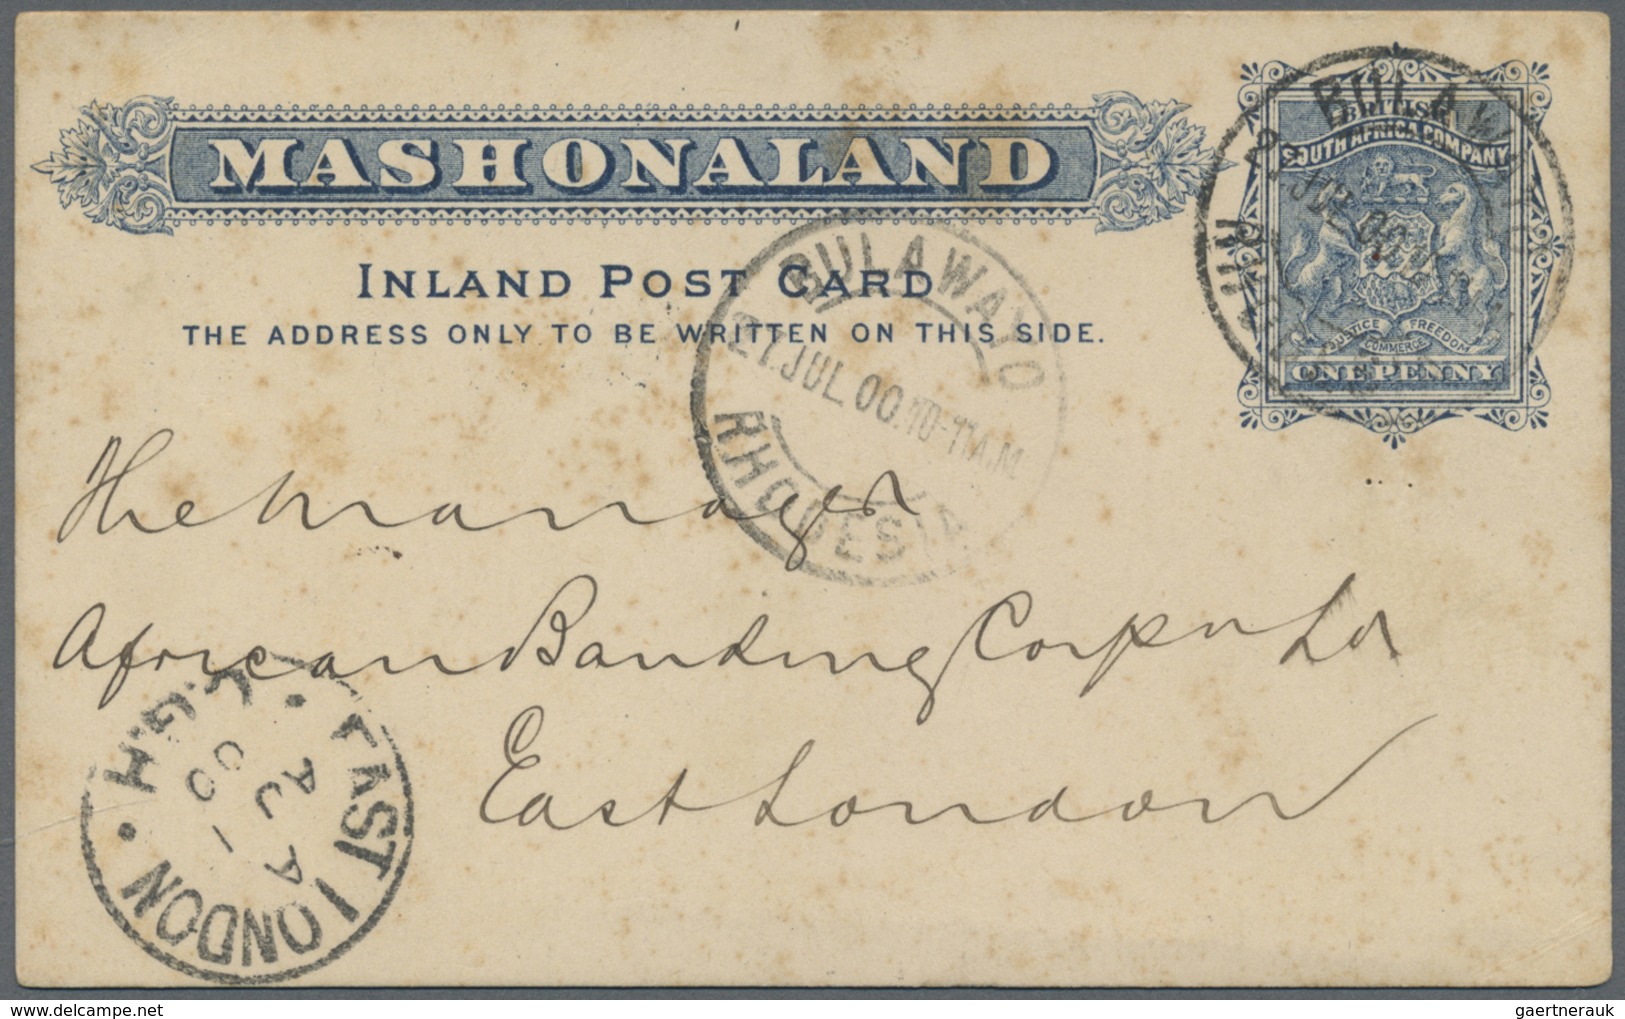 MASHONALAND
INLAND POST CARD
THE ADDRESS ONLY TO BE WRITTEN ON THIS SIDE.
BRITISH
SOUTH AFRICA COMPANY
JUSTICE FREEDOM
COMMERCE
ONE PENNY
BULAWAYO
JUL 00
BULAWAYO
27. JUL. 00. 10-11 A.M
RHODESIA
The Manager
African Banking Corpn Ld
East London
EAST LONDON
A
AU 1
00
delcampe.net
gaertnerauk